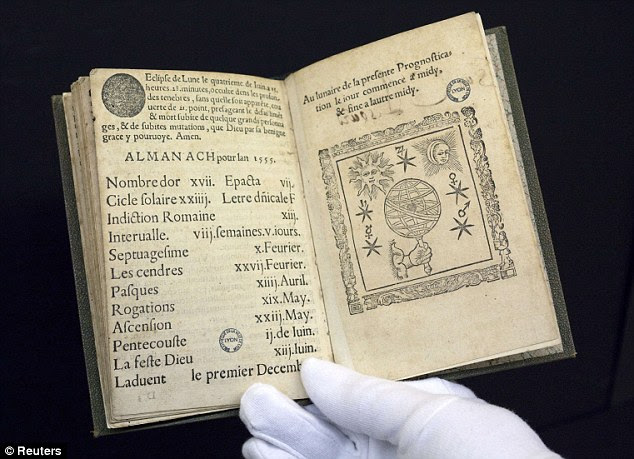 Eclipse de Lune le quatrieme de Iuin a
heures. 21. minutes, occulte dens les
des tenebres, sans quelle soit
uerte de 21. point, presageant
& mort subite de quelque grands
ges, & de subites mutation, que Dieu par sa benigne
grace y pouruoye. Amen.
ALMANACH pour lan 1555.
Nombre dor xvii. Epacta vij.
Cicle solaire xxiij. Letre dñicale F
Indiction Romaine xiij.
Interualle. viij. semaines. v. iours.
Septuagesime x. Feurier.
Les cendres xxvij. Feurier.
Pasques xiiij. Auril.
Rogations xix. May.
Ascension xxiij. May.
Pentecouste ij. de Iuin.
La feste Dieu xiij. Iuin.
Laduent le premier Decemb
LYON
Au lunaire de la presente Prognostica-
tion le iour commence a midy,
& fine a lautre midy.
© Reuters